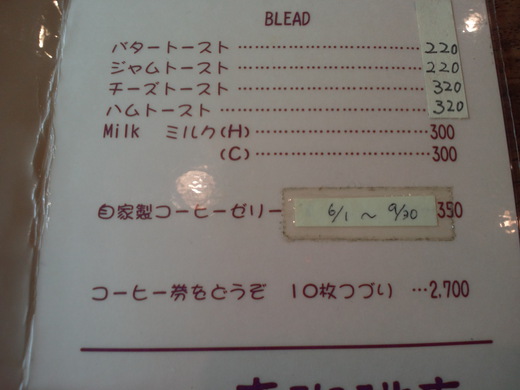 BLEAD
バタートースト……………………220
ジャムトースト……………………220
チーズトースト……………………320
ハムトースト………………………320
Milk ミルク(H)……………………300
(C)……………………300
自家製コーヒーゼリー 6/1 〜 9/30 350
コーヒー券をどうぞ 10枚つづり …2,700